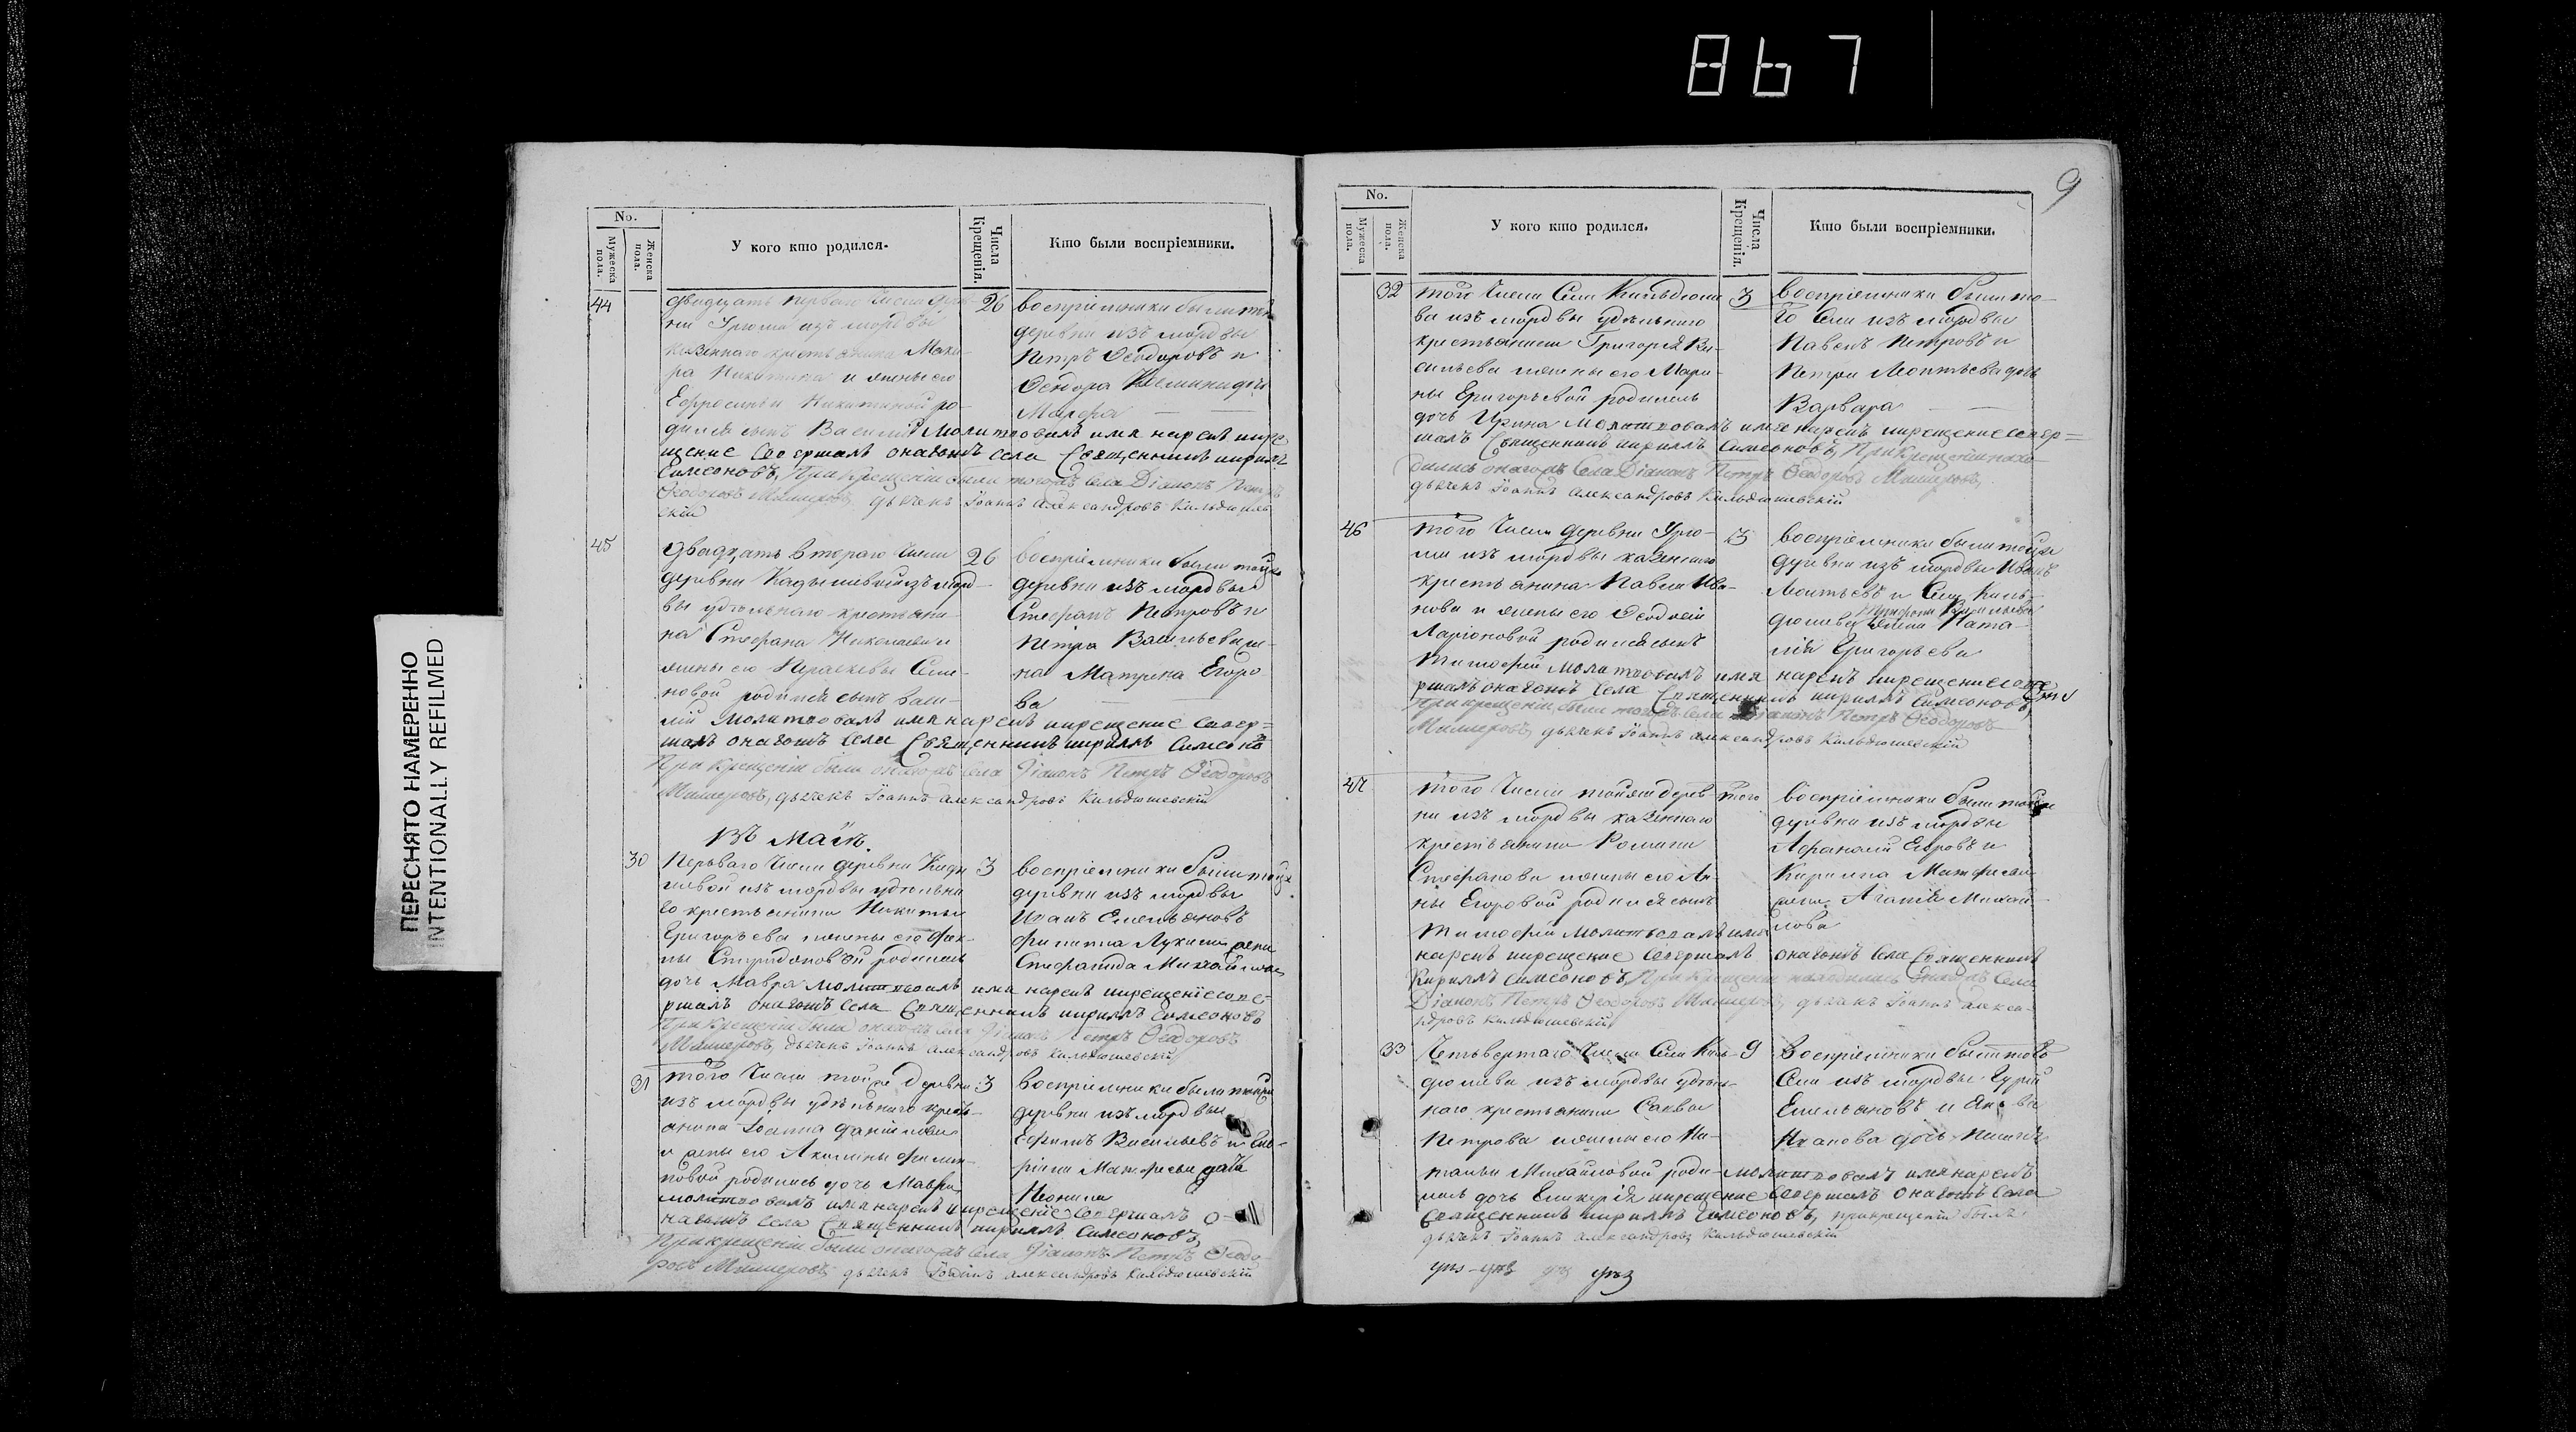 867
ПЕРЕСНЯТО НАМЕРЕННО
INTENTIONALLY REFILMED
No.
Мужеска пола.
Женска пола.
У кого кто родился.
Числа Крещенія.
Кто были воспріемники.
44
двадцать перваго числа дерев-
ни Урюма изъ мордвы
казеннаго крестьянина Мака-
ра Никитина и жены его
Ефросиньи Никитиной ро-
дился сынъ Василій Молитвовалъ имя нарекъ икре
щение совершалъ онагожъ села Священникъ Кириллъ
Симеоновъ, При крещеніи были тогожъ села Діаконъ Петръ
Ѳеодоровъ дьячекъ Іоаннъ Александровъ Кильдюшев
скій
26
воспріемники были той
деревни изъ мордвы
Петръ Ѳеодоровъ и
Ѳедора дочь
Марфа
45
Двадцать втораго числа
деревни Кадышевой изъ морд-
вы удѣльнаго крестьяни-
на Стефана Николаева и
жены его Параскевы Семе-
новой родился сынъ Васи-
лій Молитвовалъ имя нарекъ икрещение совер=
шалъ онагожъ села Священникъ Кириллъ Симеоно
При крещеніи были онагожъ села Діаконъ Петръ Ѳеодоровъ
дьячекъ Іоаннъ Александровъ Кильдюшевскій
26
воспріемники были тойже
деревни изъ мордвы
Стефанъ Петровъ и
Петра Васильева же-
на Матрена Егоро
ва
Въ Маѣ.
30
Перваго числа деревни Кады
шевой изъ мордвы удѣльна
го крестьянина Никиты
Григорьева и жены его Фек-
лы Спиридоновой родилась
дочь Мавра Молитвовалъ имя нарекъ икрещеніе сове-
ршалъ онагожъ села Священникъ Кириллъ Симеоновъ
При крещеніи были онагожъ села Діаконъ Петръ Ѳеодоровъ
дьячекъ Іоаннъ Александровъ Кильдюшевскій
3
воспріемники были тойже
деревни изъ мордвы
Иванъ Емельяновъ
Филиппа Лукина жена
Стефанида Михайлова
31
того числа той же деревни
изъ мордвы удѣльнаго кресть-
янина Іоанна Данилова
и жены его Акилины Филип-
повой родилась дочь Мавра,
молитвовалъ имя нарекъ икрещеніе совершалъ о-
нагожъ села Священникъ Кириллъ Симеоновъ,
При крещеніи были онагожъ села Діаконъ Петръ Ѳеодо-
ровъ дьячекъ Іоаннъ Александровъ Кильдюшевскій
3
воспріемники были тойже
деревни изъ мордвы
Ефимъ Васильевъ и
Матфеева дочь
Неонила
9
No.
Мужеска пола.
Женска пола.
У кого кто родился.
Числа Крещенія.
Кто были воспріемники.
32
того числа села Кильдюше
ва изъ мордвы удѣльнаго
крестьянина Григорія Ва-
сильева и жены его Мари-
ны Григорьевой родилась
дочь Ирина Молитвовалъ имя нарекъ икрещение совер=
шалъ Священникъ Кириллъ Симеоновъ, При крещеніи нахо-
дились онагожъ села Діаконъ Петръ Ѳеодоровъ
дьячекъ Іоаннъ Александровъ Кильдюшевскій
3
воспріемники были то-
го села изъ мордвы
Павелъ Петровъ и
Петра Леонтьева дочь
Варвара
46
того числа деревни Урю-
ма изъ мордвы казеннаго
крестьянина Павла Ива-
нова и жены его Ѳеодосіи
Ларіоновой родился сынъ
Тимофей Молитвовалъ имя нарекъ икрещение сове
ршалъ онагожъ села Священникъ Кириллъ Симеоновъ,
При крещеніи были тогожъ села Діаконъ Петръ Ѳеодоровъ
дьячекъ Іоаннъ Александровъ Кильдюшевскій
3
воспріемники были тойже
деревни изъ мордвы Иванъ
Леонтьевъ и села Киль-
дюшева жена Ната-
лія Григорьева
47
того числа тойже дерев-
ни изъ мордвы казеннаго
крестьянина Романа
Стефанова и жены его Ан-
ны Егоровой родился сынъ
Тимофей Молитвовалъ имя
нарекъ икрещение совершалъ онагожъ села Священникъ
Кириллъ Симеоновъ, При крещеніи находились онагожъ села
Діаконъ Петръ Ѳеодоровъ дьячекъ Іоаннъ Алекса-
ндровъ Кильдюшевскій
того
воспріемники были тойже
деревни изъ мордвы
Афанасій Егоровъ и
Кирилла Матфеева
жена Агапія Михай-
лова
33
Четвертаго числа села Киль-
дюшева изъ мордвы удѣль-
наго крестьянина Саввы
Петрова и жены его На-
тальи Михайловой роди-
лась дочь Гликерія икрещение совершалъ онагожъ села
Священникъ Кириллъ Симеоновъ, при крещеніи былъ
дьячекъ Іоаннъ Александровъ Кильдюшевскій
9
воспріемники были того
села изъ мордвы Гурій
Емельяновъ и Якова
Иванова дочь
молитвовалъ имя нарекъ